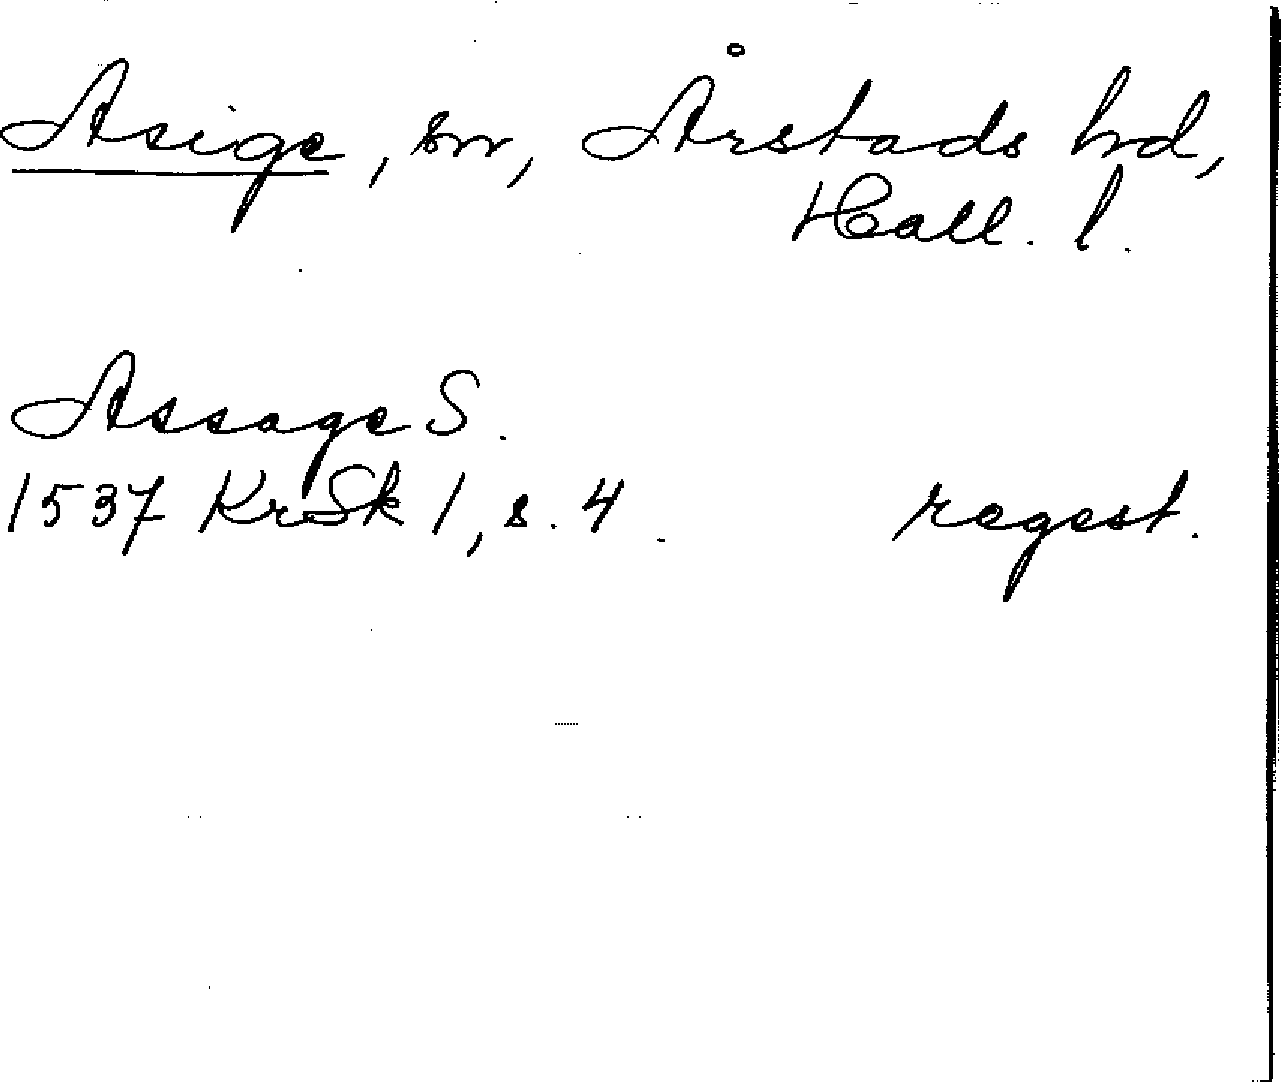 Asige, sn, Årstads hd,
Hall. l.
Assage S.
1537 KrSk 1, s. 4. regest.